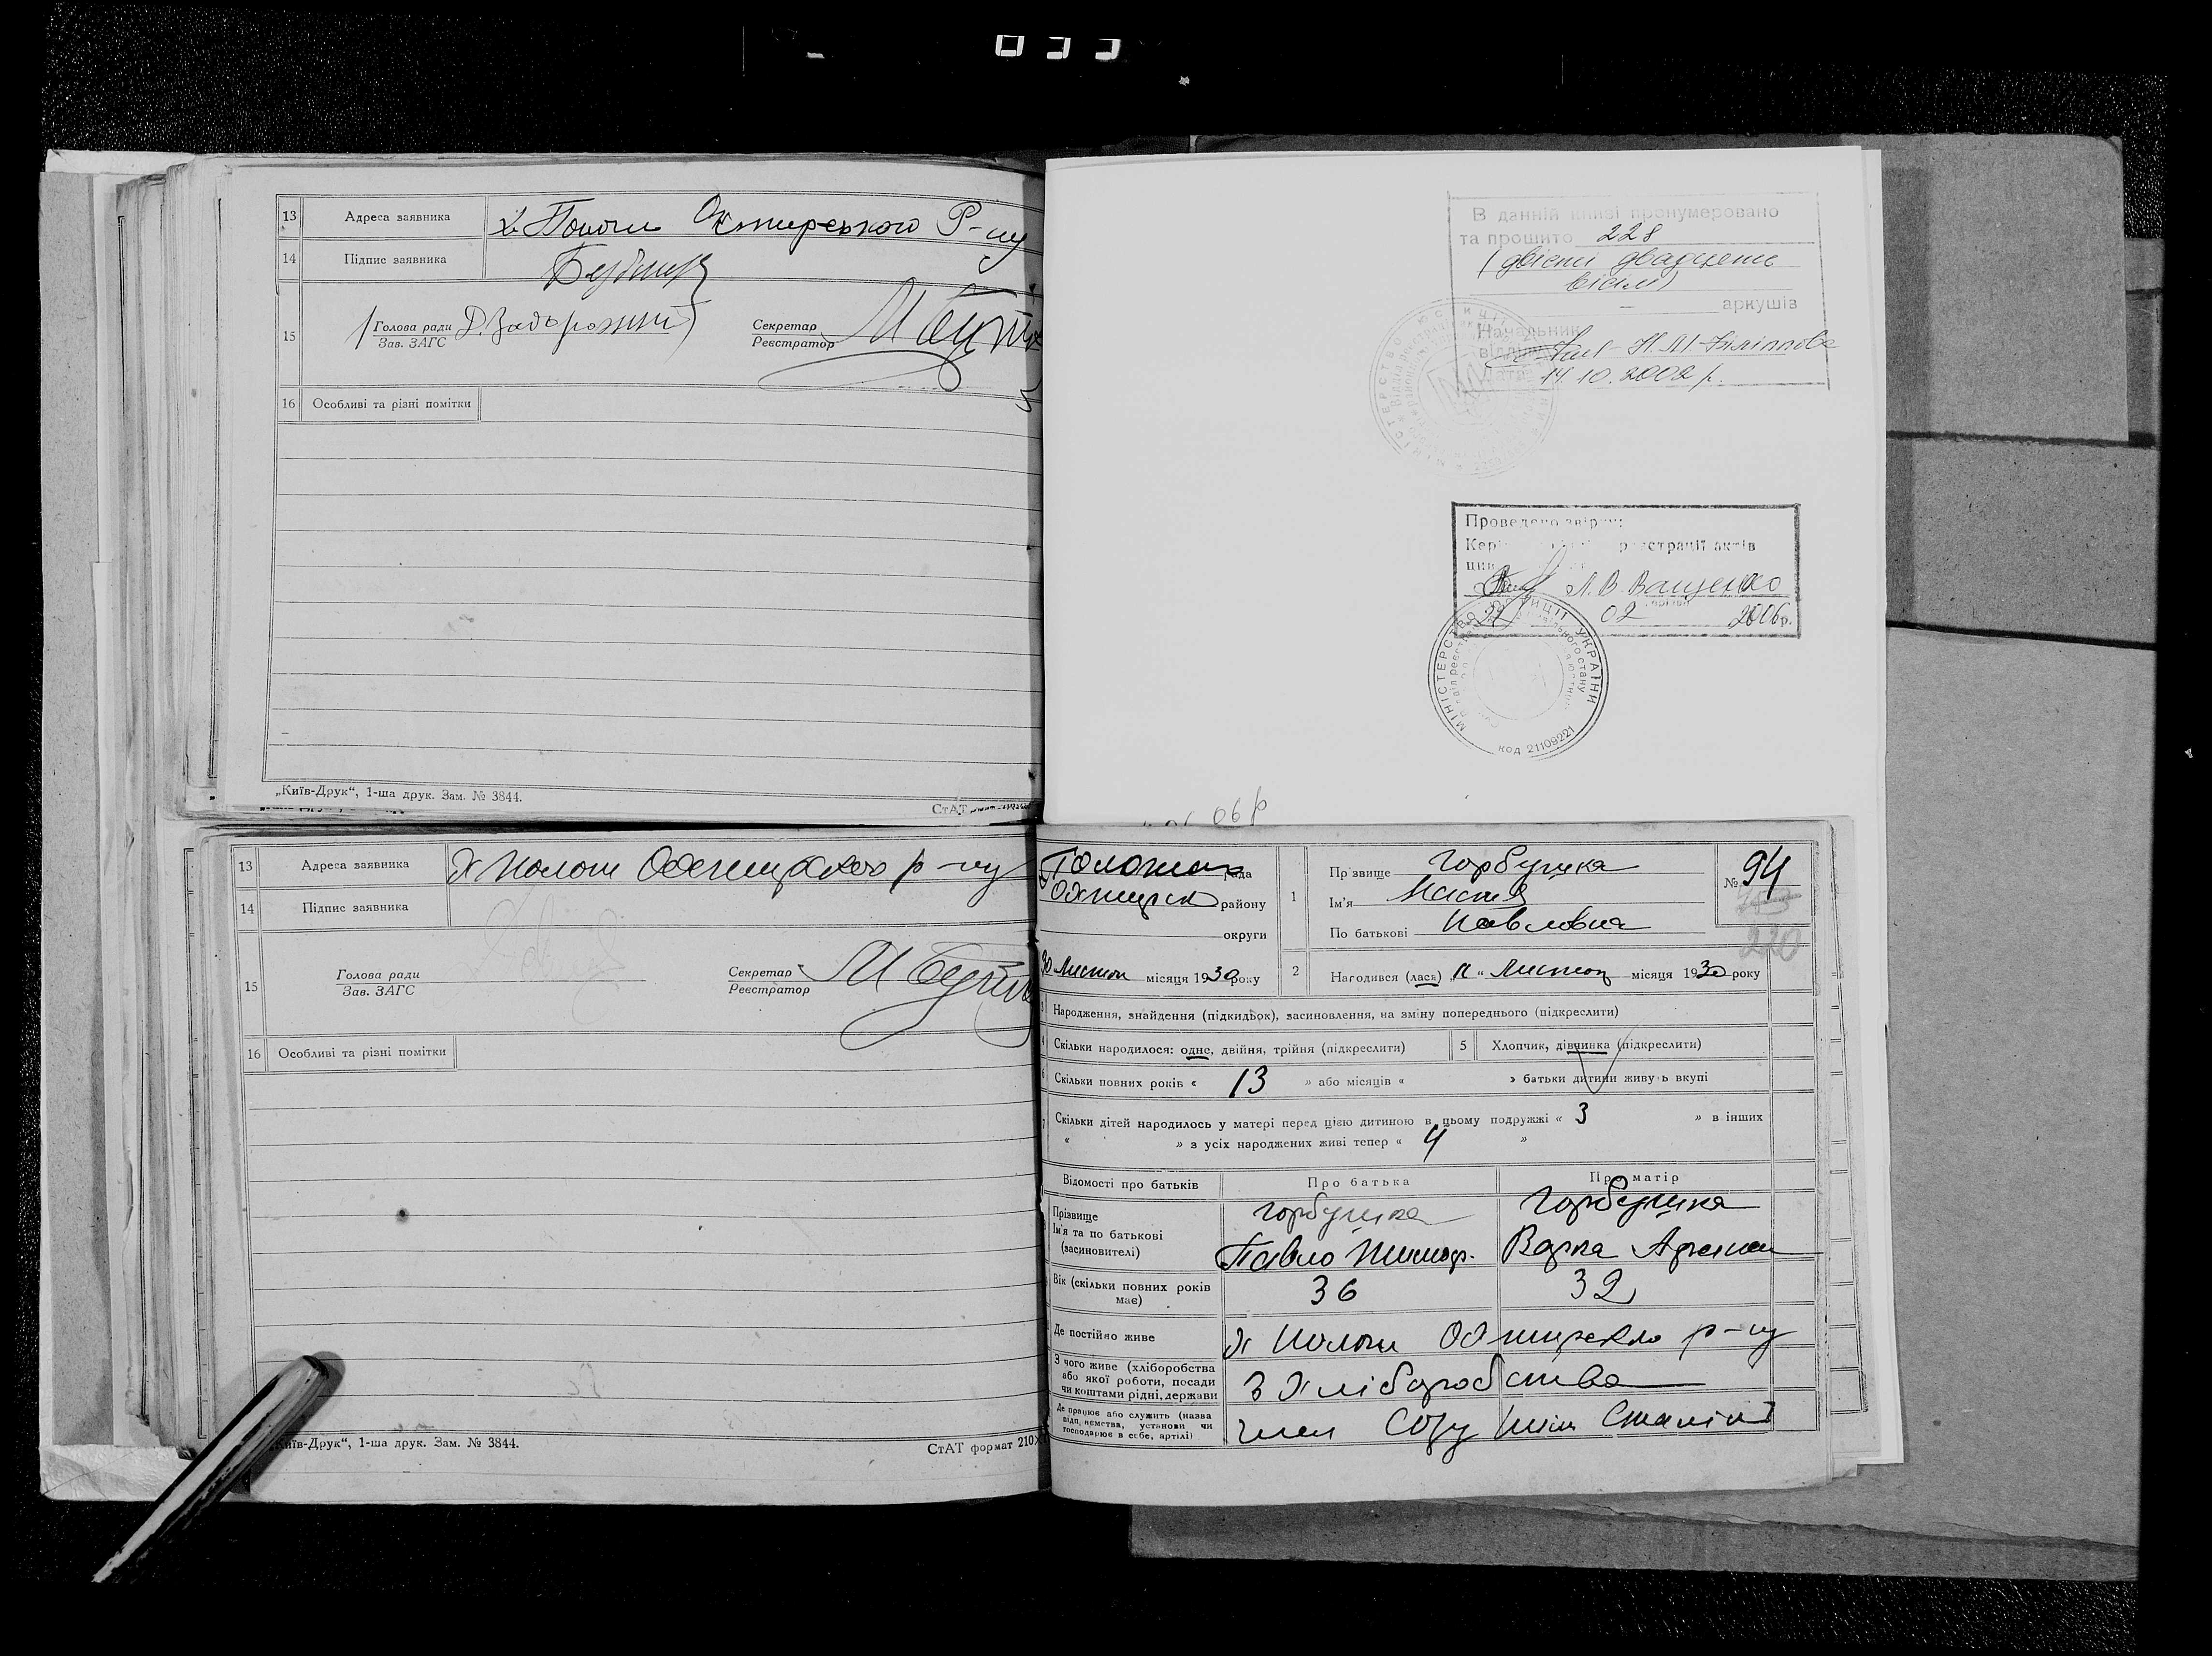 13 Адреса заявника х. Пологи Охтирського Р-ну
14 Підпис заявника
15 Голова ради Д. Задорожній Секретар
Зав. ЗАГС Реєстратор
16 Особливі та різні помітки
„Київ-Друк“, 1-ша друк. Зам. № 3844.
СтАТ
В данній книзі пронумеровано
та прошито 228
(двісті двадцять
вісім)
аркушів
Начальник
відділу Н.М. Філіппова
Дата 14.10.2002 р.
МІНІСТЕРСТВО ЮСТИЦІЇ
Проведено звірку:
реєстрації актів
Л.В. Ващенко
02 2006р.
МІНІСТЕРСТВО ЮСТИЦІЇ УКРАЇНИ
код 21109221
06 р
13 Адреса заявника р-ну
14 Підпис заявника
15 Голова ради Секретар
Зав. ЗАГС Реєстратор
16 Особливі та різні помітки
„Київ-Друк“, 1-ша друк. Зам. № 3844.
СтАТ формат 210
рада
району
округи
30 Листоп місяця 1930 року
1 Прізвище Горбушка
Ім'я
По батькові Павловна
№ 94
220
2 Народився (лася) Листоп місяця 1930 року
Народження, знайдення (підкидьок), засиновлення, на зміну попереднього (підкреслити)
Скільки народилося: одне, двійня, трійня (підкреслити) 5 Хлопчик, дівчинка (підкреслити)
Скільки повних років « 13 » або місяців « » батьки дитини живуть вкупі
Скільки дітей народилось у матері перед цією дитиною в цьому подружжі « 3 » в інших
« » з усіх народжених живі тепер « 4 »
Відомості про батьків Про батька Про матір
Прізвище Горбушка Горбушка
Ім'я та по батькові Павло Варка
(засиновителі)
Вік (скільки повних років 36 32
має)
Де постійно живе р-ну
З чого живе (хліборобства
або якої роботи, посади З хліборобства
чи коштами рідні, держави
Де працює або служить (назва
підприємства, установи чи
господарює в себе, артілі) член Созу